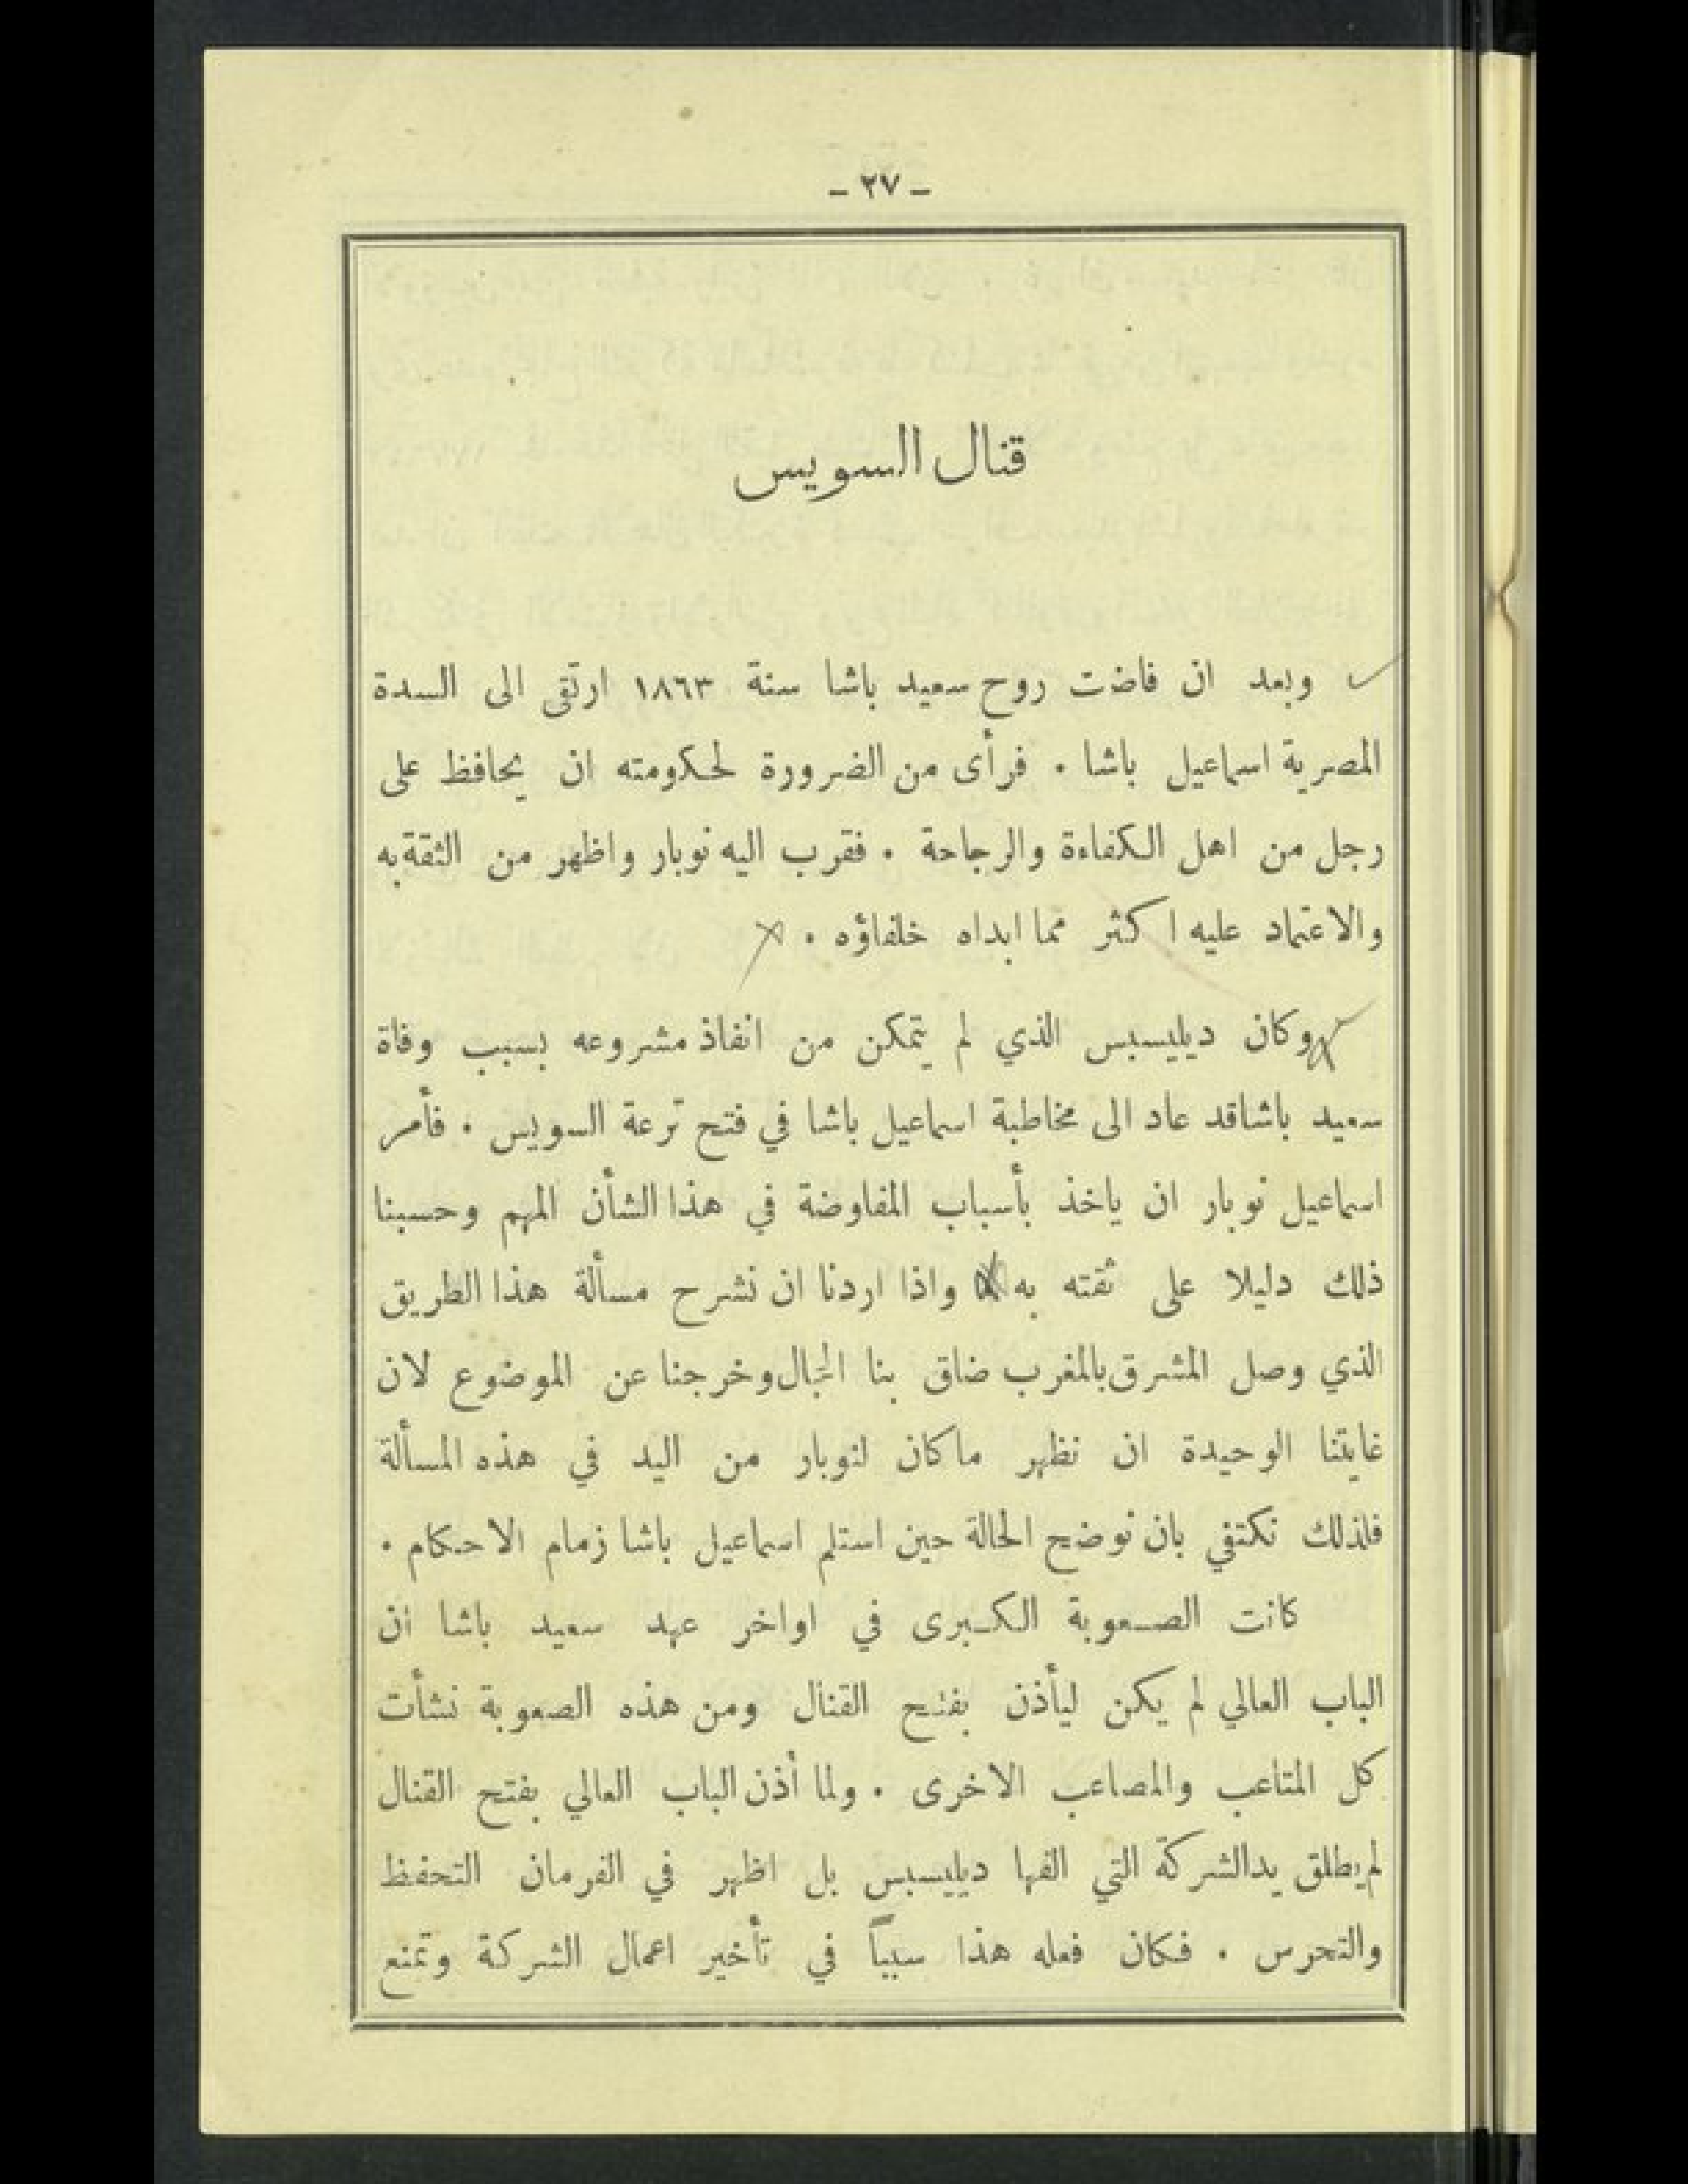 - ٢٧ -
قنال السويس
وبعد ان فاضت روح سعيد باشا سنة ١٨٦٣ ارتقى الى السدة
المصرية اسماعيل باشا . فرأى من الضرورة لحكومته ان يحافظ على
رجل من اهل الكفاءة والرجاحة . فقرب اليه نوبار واظهر من الثقة به
والاعتماد عليه اكثر مما ابداه خلفاؤه .
وكان ديليسبس الذي لم يتمكن من انفاذ مشروعه بسبب وفاة
سعيد باشا قد عاد الى مخاطبة اسماعيل باشا في فتح ترعة السويس . فأمر
اسماعيل نوبار ان ياخذ بأسباب المفاوضة في هذا الشأن المهم وحسبنا
ذلك دليلا على ثقته به واذا اردنا ان نشرح مسألة هذا الطريق
الذي وصل المشرق بالمغرب ضاق بنا المجال وخرجنا عن الموضوع لان
غايتنا الوحيدة ان نظهر ما كان لنوبار من اليد في هذه المسألة
فلذلك نكتفي بان نوضح الحالة حين استلم اسماعيل باشا زمام الاحكام .
كانت الصعوبة الكبرى في اواخر عهد سعيد باشا ان
الباب العالي لم يكن ليأذن بفتح القنال ومن هذه الصعوبة نشأت
كل المتاعب والمصاعب الاخرى . ولما أذن الباب العالي بفتح القنال
لم يطلق يد الشركة التي الفها ديليسبس بل اظهر في الفرمان التحفظ
والتحرس . فكان فعله هذا سبباً في تأخير اعمال الشركة وتمنع